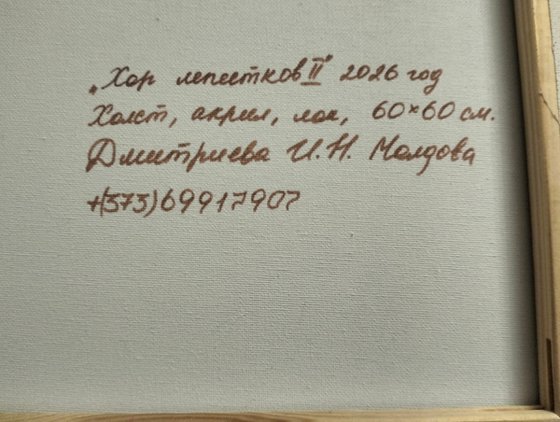 „Хор лепестков II" 2026 год
Холст, акрил, лак, 60×60 см.
Дмитриева И.Н. Молдова
+(373)69917907